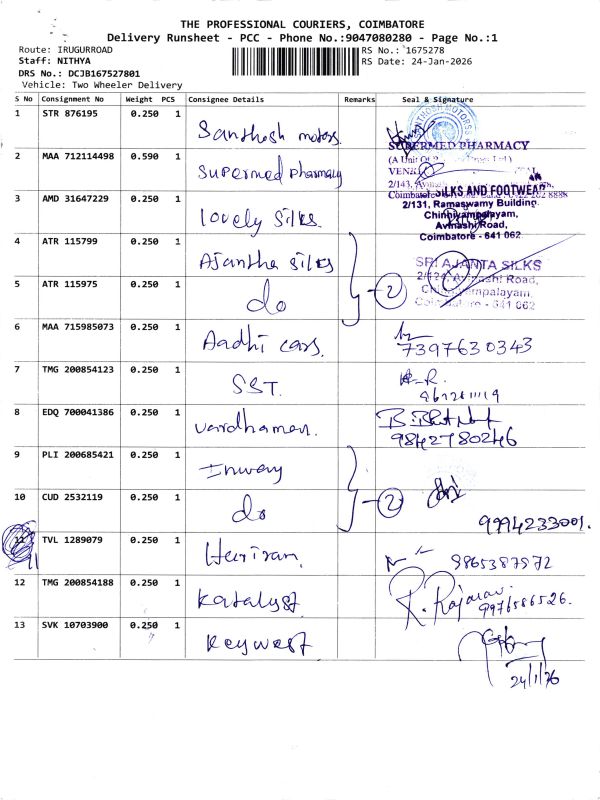 THE PROFESSIONAL COURIERS, COIMBATORE
Delivery Runsheet - PCC - Phone No.:9047080280 - Page No.:1
Route: IRUGURROAD
RS No.: 1675278
Staff: NITHYA
RS Date: 24-Jan-2026
DRS No.: DCJB167527801
Vehicle: Two Wheeler Delivery
S No Consignment No Weight PCS Consignee Details Remarks Seal & Signature
1 STR 876195 0.250 1 Santhosh motors
2 MAA 712114498 0.590 1 Supermed Pharmacy
SUPERMED PHARMACY
3 AMD 31647229 0.250 1 lovely silks
SILKS AND FOOTWEAR
2/131, Ramaswamy Building
Chinniyampalayam,
Avinashi Road,
Coimbatore - 641 062
4 ATR 115799 0.250 1 Ajantha silks
SRI AJANTA SILKS
5 ATR 115975 0.250 1 do 2
Avinashi Road,
641 062
6 MAA 715985073 0.250 1 Aadhi cars.
7397630343
7 TMG 200854123 0.250 1 SST.
8 EDQ 700041386 0.250 1 vardhaman.
9842780246
9 PLI 200685421 0.250 1
10 CUD 2532119 0.250 1 do 2
9994233001.
11 TVL 1289079 0.250 1 Hariram
9865387972
12 TMG 200854188 0.250 1 Katalyst
R. Rajarav
9976586526.
13 SVK 10703900 0.250 1 Keywest
24/1/26